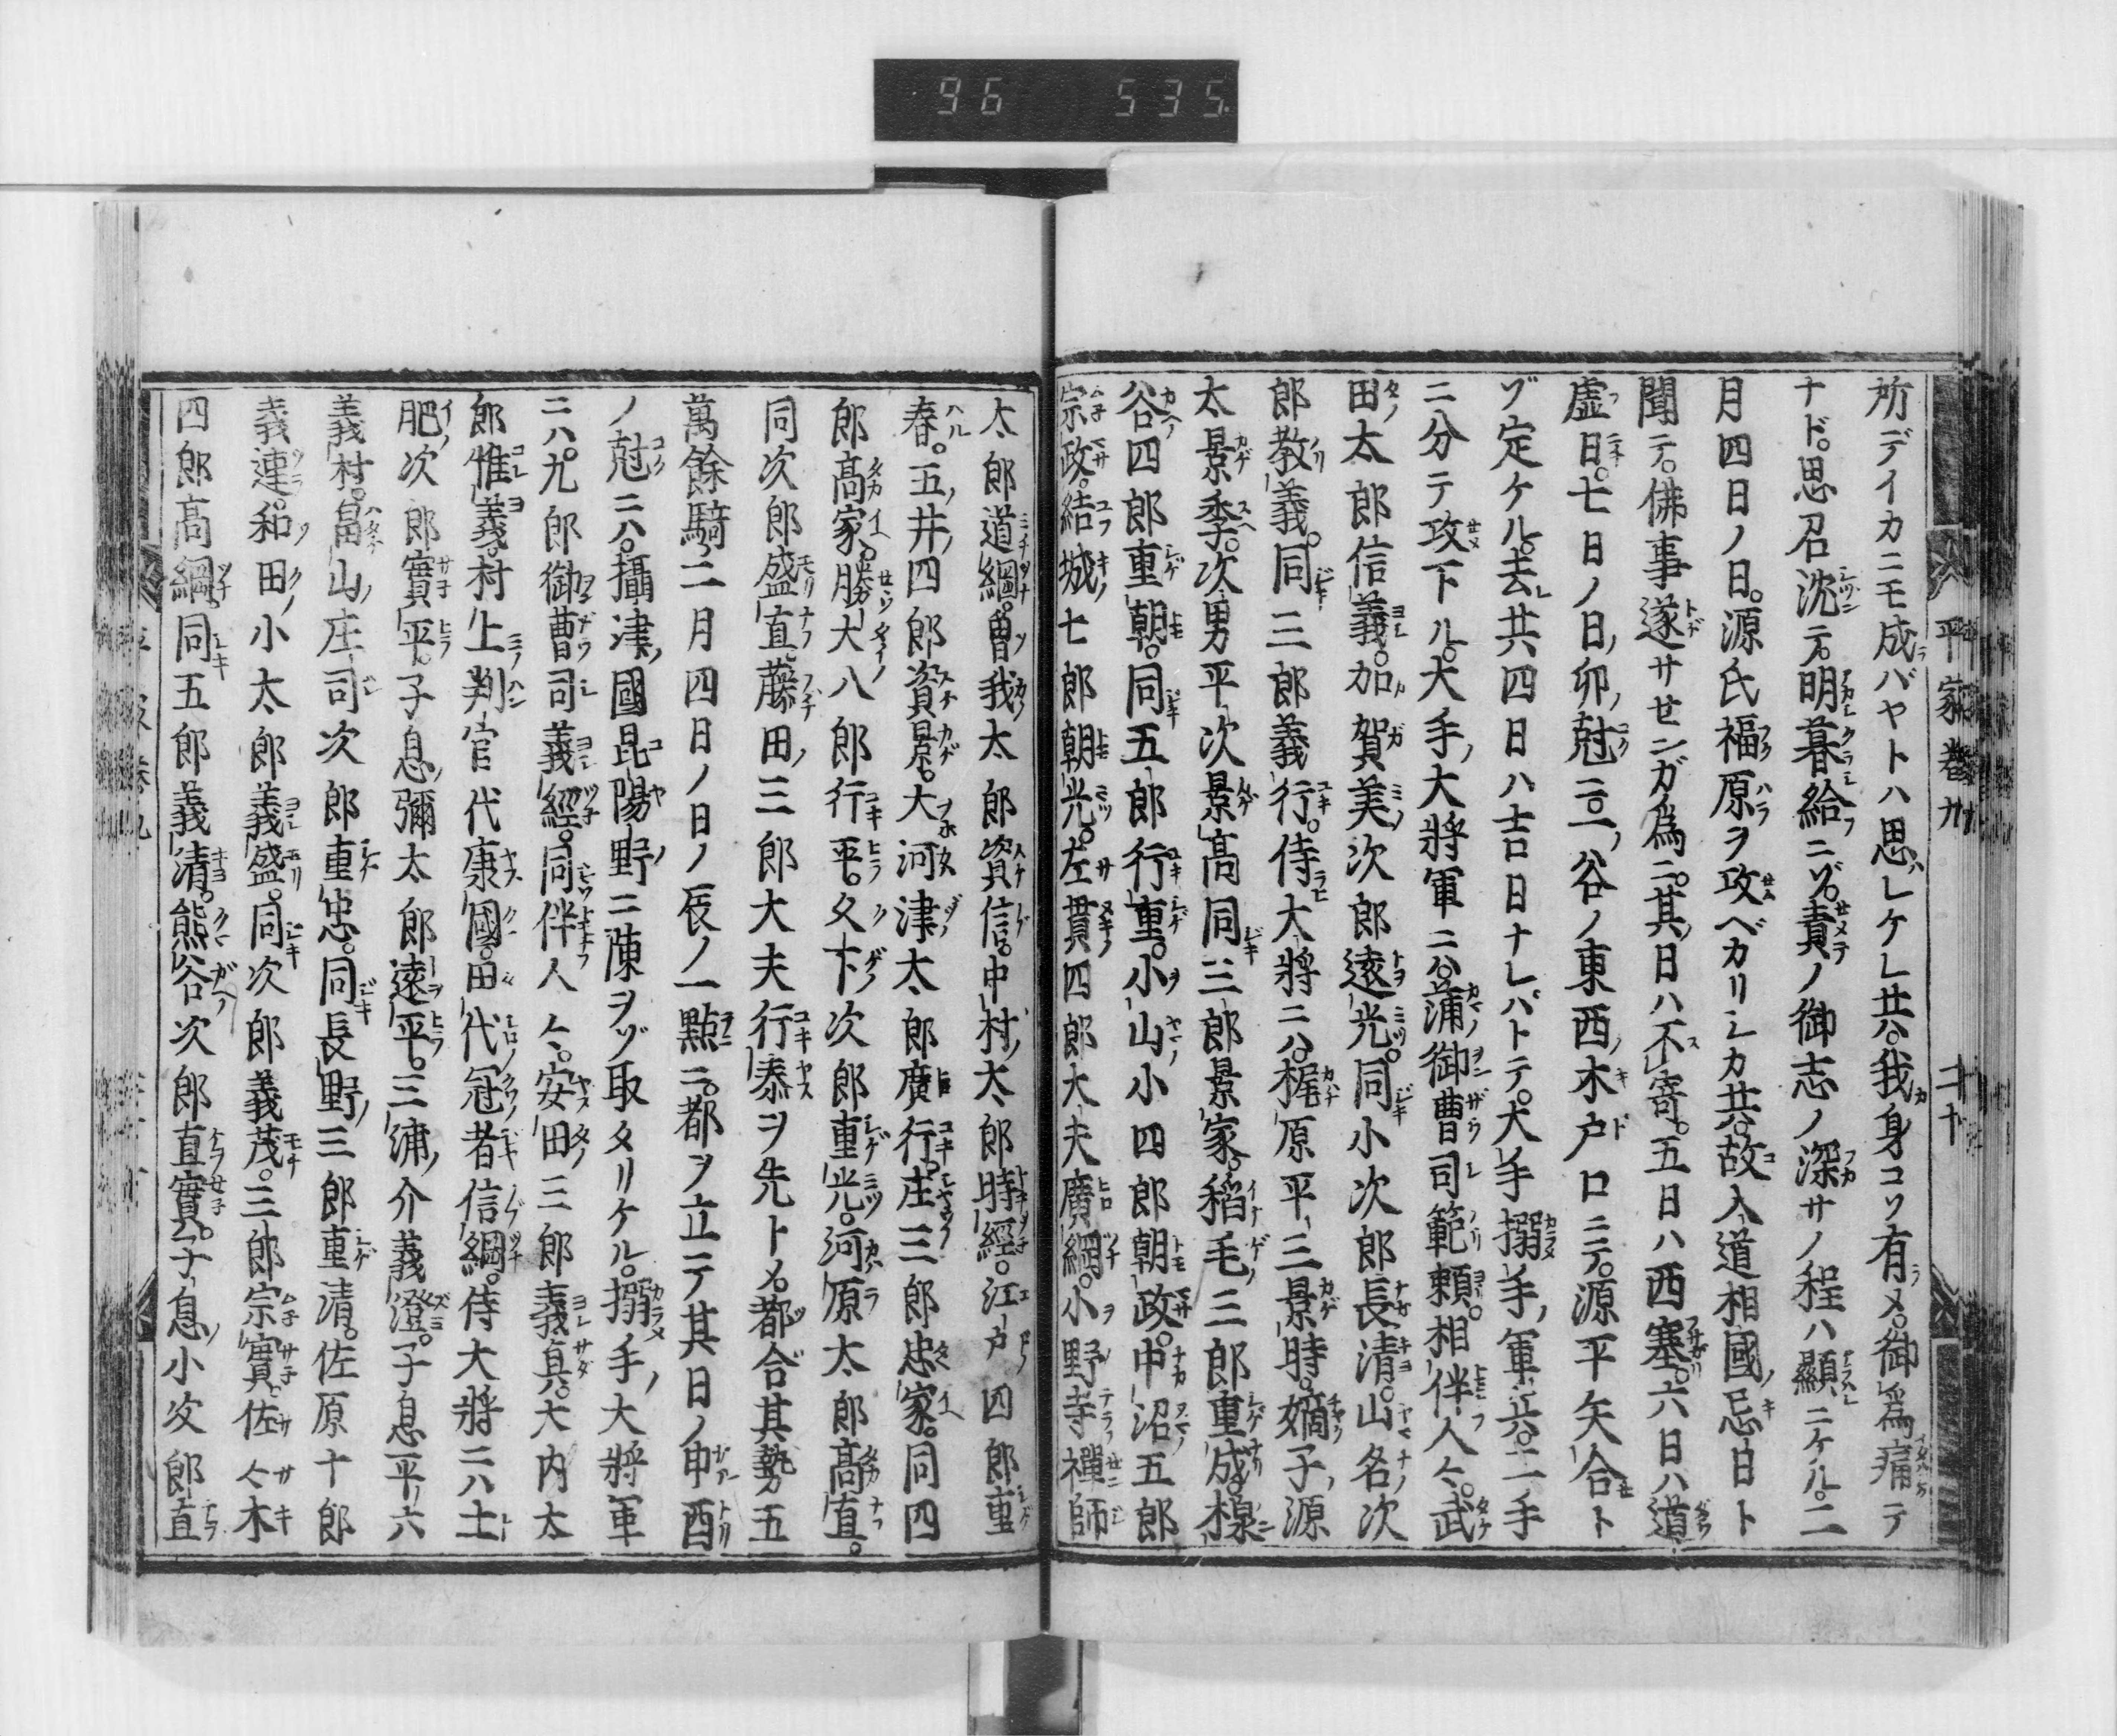 96 535
平家巻九
所デイカニモ成バヤトハ思レケレ共。我身コソ有メ。御爲痛テ
ナド。思召沈テ。明暮給ニゾ。責ノ御志ノ深サノ程ハ顯ニケル。二
月四日ノ日。源氏福原ヲ攻ベカリシカ共。故入道相國ノ忌日ト
聞テ。佛事遂サセンガ爲ニ。其日ハ不寄。五日ハ西塞。六日ハ道
虚日。七日ノ日ノ卯ノ尅ニ一ノ谷ノ東西ノ木戸口ニテ。源平矢合ト
ゾ定ケル。去共四日ハ吉日ナレバトテ。大手搦手ノ軍兵。二手
ニ分テ攻下ル。大手ノ大將軍ニハ。蒲ノ御曹司範頼。相伴人々。武
田太郎信義。加賀美次郎遠光。同小次郎長清。山名次
郎教義。同三郎義行。侍大將ニハ。梶原平三景時。嫡子ノ源
太景季。次男平次景高。同三郎景家。稻毛三郎重成。榛
谷四郎重朝。同五郎行重。小山小四郎朝政。中沼五郎
宗政。結城七郎朝光。左貫四郎大夫廣綱。小野寺禪師
太郎道綱。曽我太郎資信。中村太郎時經。江戸四郎重
春。五井四郎資景。大河津太郎廣行。庄三郎忠家。同四
郎高家。勝大八郎行平。久下次郎重光。河原太郎高直。
同次郎盛直。藤田三郎大夫行泰ヲ先トメ。都合其勢五
萬餘騎。二月四日ノ日ノ辰ノ一點ニ。都ヲ立テ其日ノ申酉
ノ尅ニハ。攝津ノ國昆陽野ニ陳ヲゾ取タリケル。搦手ノ大將軍
ニハ。九郎御曹司義經。同伴人々。安田三郎義真。大内太
郎惟義。村上判官代康國。田代冠者信綱。侍大將ニハ土
肥次郎實平。子息彌太郎遠平。三浦介義澄。子息平六
義村。畠山庄司次郎重忠。同長野三郎重清。佐原十郎
義連。和田小太郎義盛。同次郎義茂。三郎宗實。佐々木
四郎高綱。同五郎義清。熊谷次郎直實。子息小次郎直